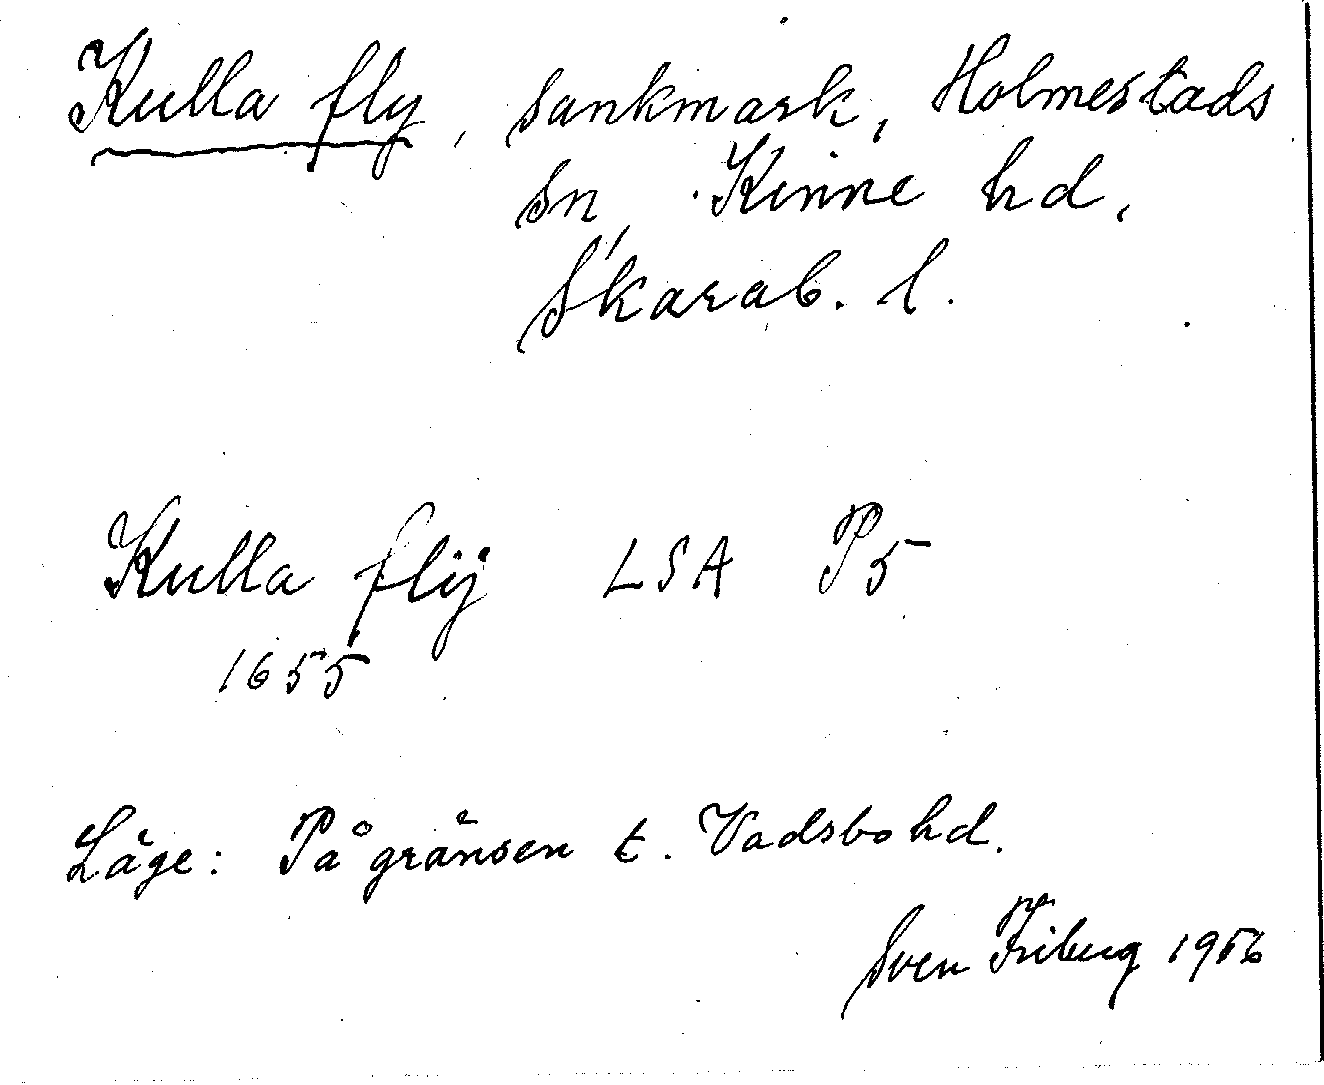 Kulla fly, sankmark, Holmestads
sn, Kinne hd,
Skarab. l.
Kulla flÿ LSA P5
1655
Läge: På gränsen t. Vadsbo hd.
Sven Friberg 1956